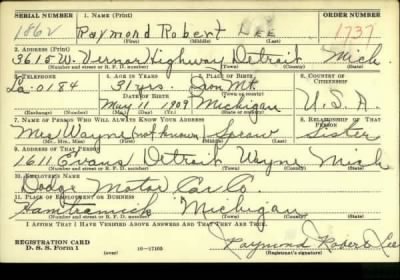 SERIAL NUMBER 1. NAME (Print) ORDER NUMBER
1862 Raymond Robert LEE 1737
(First) (Middle) (Last)
2. ADDRESS (Print)
3615 W. Vernor Highway Detroit Mich.
(Number and street or R. F. D. number) (Town) (County) (State)
3. TELEPHONE 4. AGE IN YEARS 5. PLACE OF BIRTH 6. COUNTRY OF CITIZENSHIP
La. 0184 31 yrs. Iron Mt.
DATE OF BIRTH (Town or county)
May 11 1909 Michigan U.S.A.
(Exchange) (Number) (Mo.) (Day) (Yr.) (State or country)
7. NAME OF PERSON WHO WILL ALWAYS KNOW YOUR ADDRESS 8. RELATIONSHIP OF THAT PERSON
Mrs Wayne (not known) Sister
(Mr., Mrs., Miss) (First) (Middle) (Last)
9. ADDRESS OF THAT PERSON
1611 Evans Detroit Wayne Mich
(Number and street or R. F. D. number) (Town) (County) (State)
10. EMPLOYER'S NAME
Dodge Motor Car Co.
11. PLACE OF EMPLOYMENT OR BUSINESS
Hamtramck Michigan
(Number and street or R. F. D. number) (Town) (County) (State)
I AFFIRM THAT I HAVE VERIFIED ABOVE ANSWERS AND THAT THEY ARE TRUE.
REGISTRATION CARD
D. S. S. Form 1 (over) 16—17105 Raymond Robert Lee
(Registrant's signature)